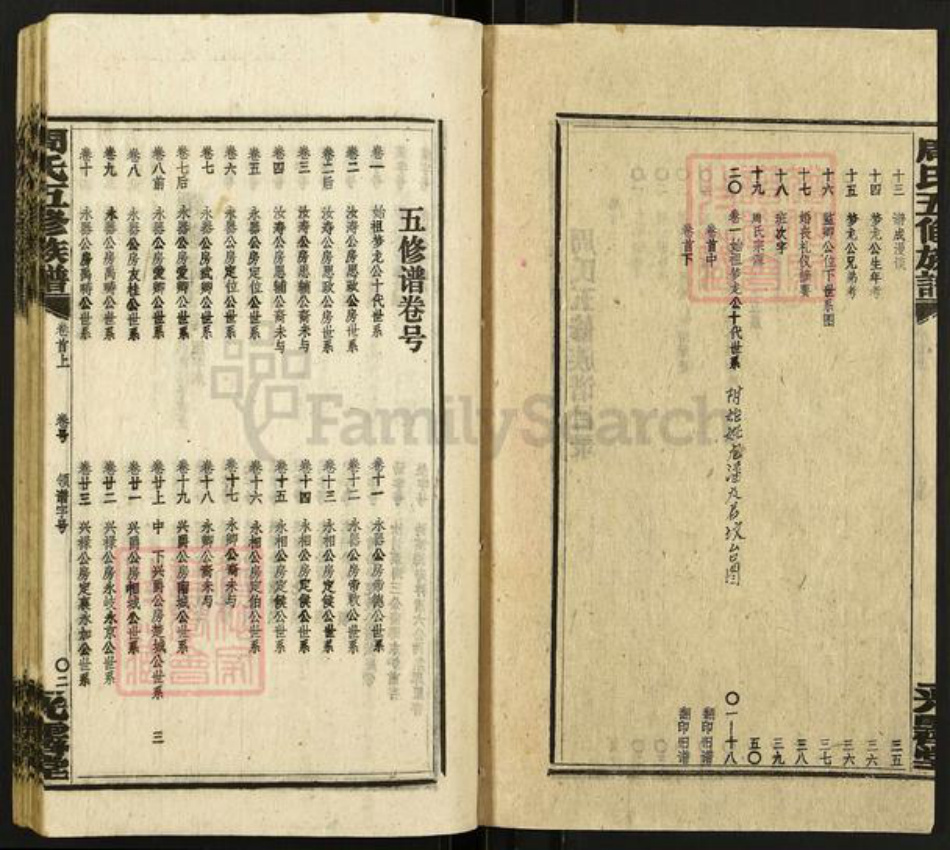 周氏五修族譜
十三 游成漫谈 三五
十四 梦龙公生年考 三六
十五 梦龙公兄弟考 三六
十六 监卿公位下世系图 三七
十七 婚丧礼仪 三八
十八 班次字 三九
十九 周氏宗 五〇
二〇 卷一始祖梦龙公十代世系 〇一—十八
卷首中 翻印旧谱
卷首下 翻印旧谱
光霽堂
五修谱卷号
卷一 始祖梦龙公十代世系
卷二 汝涛公房思敬公房世系
卷二后 汝涛公房思政公房世系
卷三 汝涛公房思辅公裔未与
卷四 汝涛公房思辅公裔未与
卷五 永器公房定位公世系
卷六 永器公房定位公世系
卷七 永器公房武卿公世系
卷七后 永器公房爱卿公世系
卷八前 永器公房爱卿公世系
卷八 永器公房友桂公世系
卷九 永器公房禹畴公世系
卷十 永器公房禹畴公世系
卷十一 永器公房帝德公世系
卷十二 永器公房帝敕公世系
卷十三 永相公房定侯公世系
卷十四 永相公房定侯公世系
卷十五 永相公房定侯公世系
卷十六 永相公房定伯公世系
卷十七 永卿公裔未与
卷十八 永卿公裔未与
卷十九 兴爵公房南城公世系
卷廿上 中 下兴爵公房楚城公世系 三
卷廿一 兴爵公房相城公世系
卷廿二 兴禄公房永岐永京公世系
卷廿三 兴禄公房定襄永加公世系
周氏五修族譜
卷首上
卷号 领谱字号
〇二
光霽堂
FamilySearch